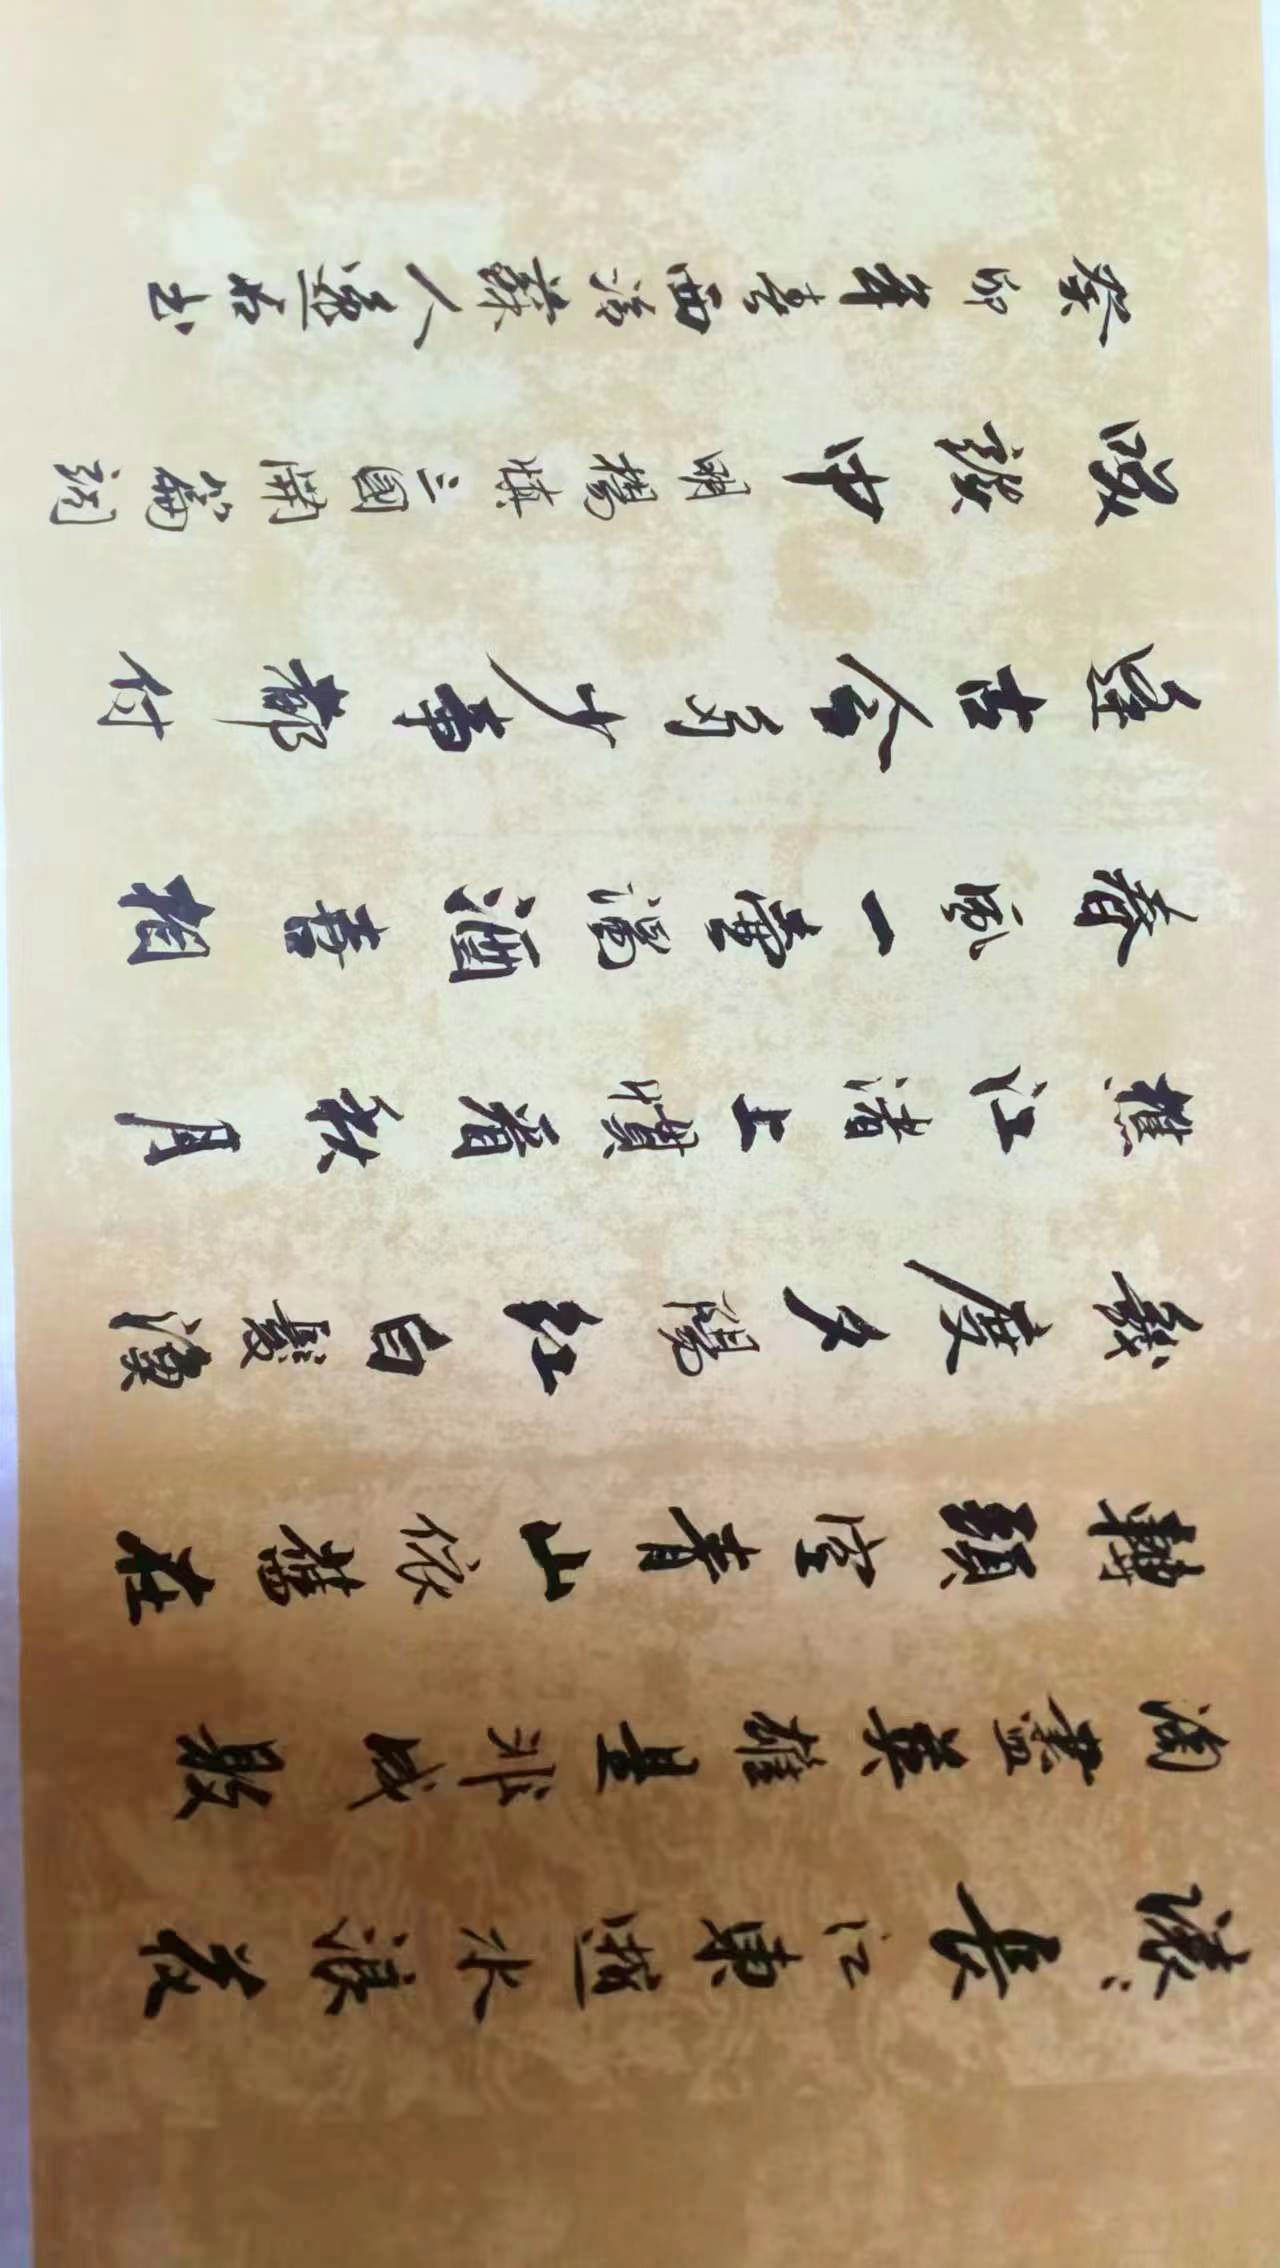 滚〻長江東逝水浪花
淘盡英雄是非成敗
轉頭空青山依舊在
幾度夕陽紅白髮漁
樵江渚上慣看秋月
春風一壺濁酒喜相
逢古今多少事都付
咲談中 明楊慎三國開篇詞
癸卯年春西蘇人书